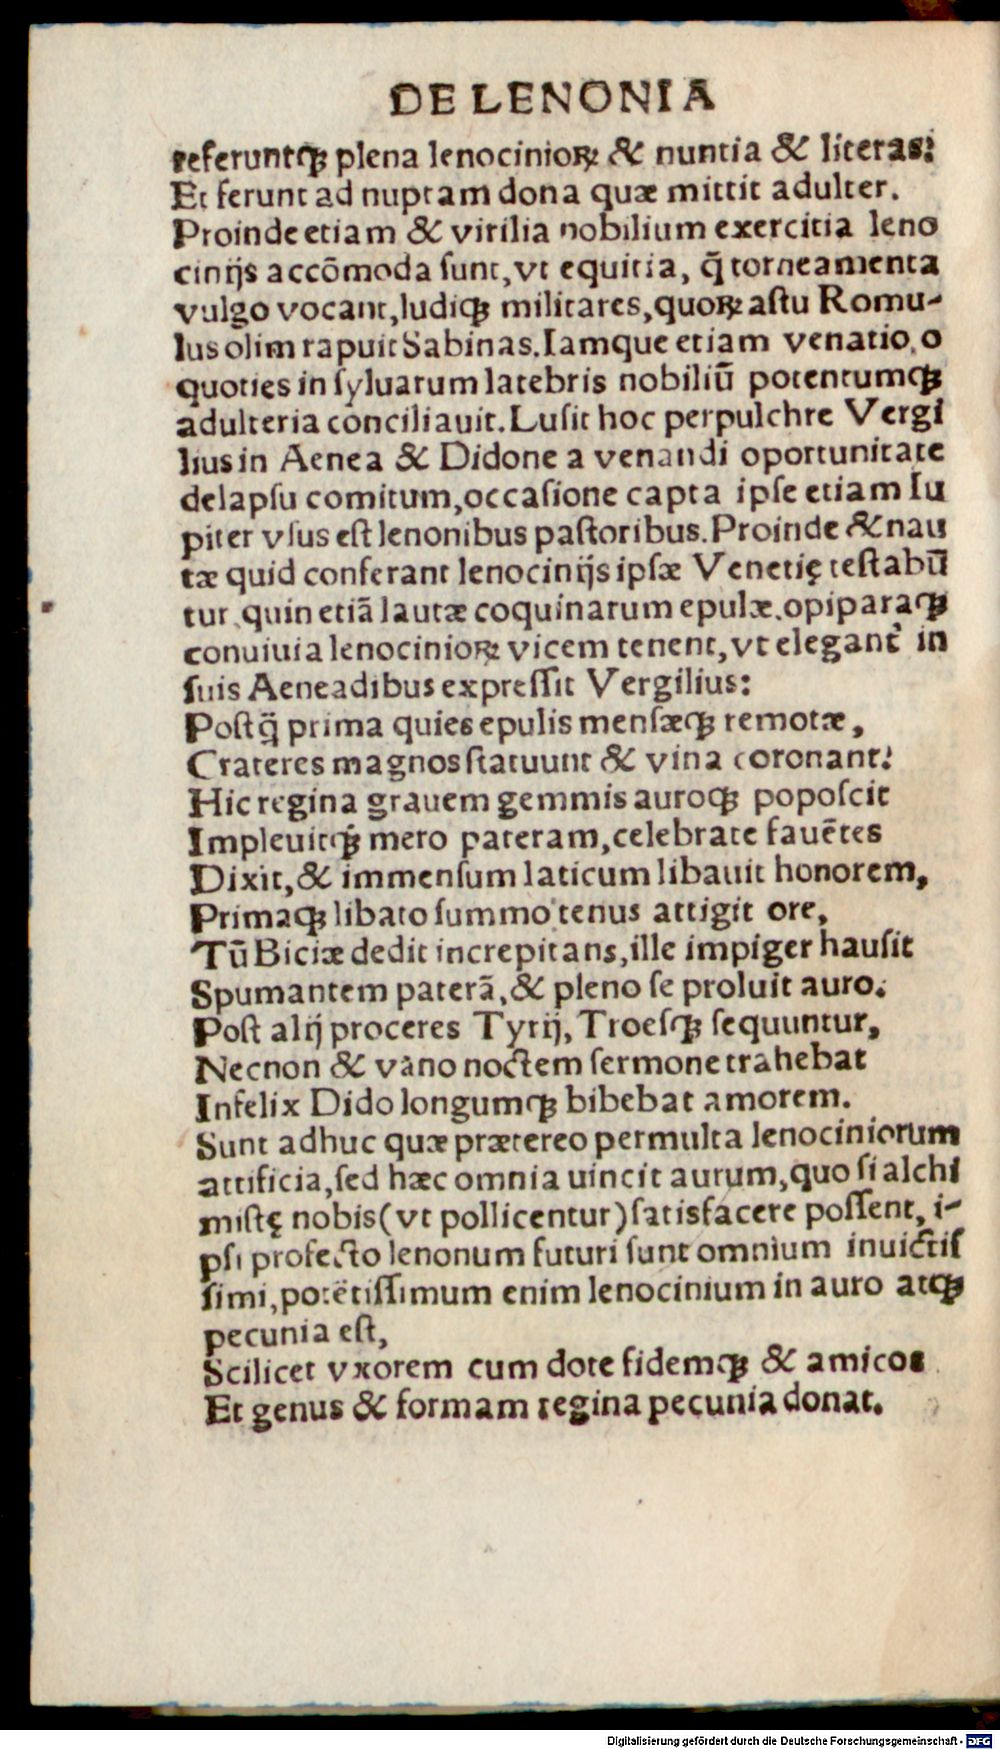 DE LENONIA
referuntqꝫ plena lenociniorꝝ & nuntia & literas:
Et ferunt ad nuptam dona quæ mittit adulter.
Proinde etiam & virilia nobilium exercitia leno
cinijs accōmoda sunt, vt equitia, q̃ torneamenta
vulgo vocant, ludiqꝫ militares, quoꝝ astu Romu-
lus olim rapuit Sabinas. Iamque etiam venatio, o
quoties in syluarum latebris nobiliū potentumqꝫ
adulteria conciliauit. Lusit hoc perpulchre Vergi
lius in Aenea & Didone a venandi oportunitate
delapsu comitum, occasione capta ipse etiam Iu
piter vsus est lenonibus pastoribus. Proinde & nau
tæ quid conferant lenocinijs ipsæ Venetię testabū
tur, quin etiā lautæ coquinarum epulæ, opiparaqꝫ
conuiuia lenocinioꝝ vicem tenent, vt elegant̓ in
suis Aeneadibus expressit Vergilius:
Postq̃ prima quies epulis mensæqꝫ remotæ,
Crateres magnos statuunt & vina coronant:
Hic regina grauem gemmis auroqꝫ poposcit
Impleuitqꝫ mero pateram, celebrate fauētes
Dixit, & immensum laticum libauit honorem,
Primaqꝫ libato summo tenus attigit ore,
Tū Biciæ dedit increpitans, ille impiger hausit
Spumantem paterā, & pleno se proluit auro.
Post alij proceres Tyrij, Troesqꝫ sequuntur,
Necnon & vàno noctem sermone trahebat
Infelix Dido longumqꝫ bibebat amorem.
Sunt adhuc quæ prætereo permulta lenociniorum
artificia, sed hæc omnia uincit aurum, quo si alchi
mistę nobis (vt pollicentur) satisfacere possent, i-
psi profecto lenonum futuri sunt omnium inuictis
simi, potētissimum enim lenocinium in auro atqꝫ
pecunia est,
Scilicet vxorem cum dote fidemqꝫ & amicos
Et genus & formam regina pecunia donat.
Digitalisierung gefördert durch die Deutsche Forschungsgemeinschaft - DFG